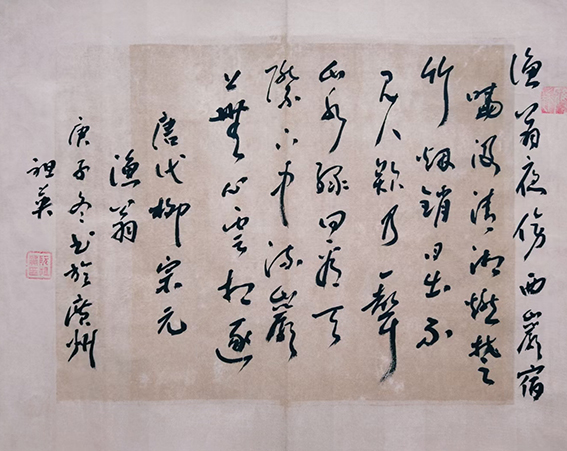 渔翁夜傍西巖宿
曉汲清湘燃楚
竹烟销日出不
见人欸乃一聲
山水绿回看天
際下中流巖
上無心雲相逐
唐代柳宗元
渔翁
庚子冬书於廣州
祖英